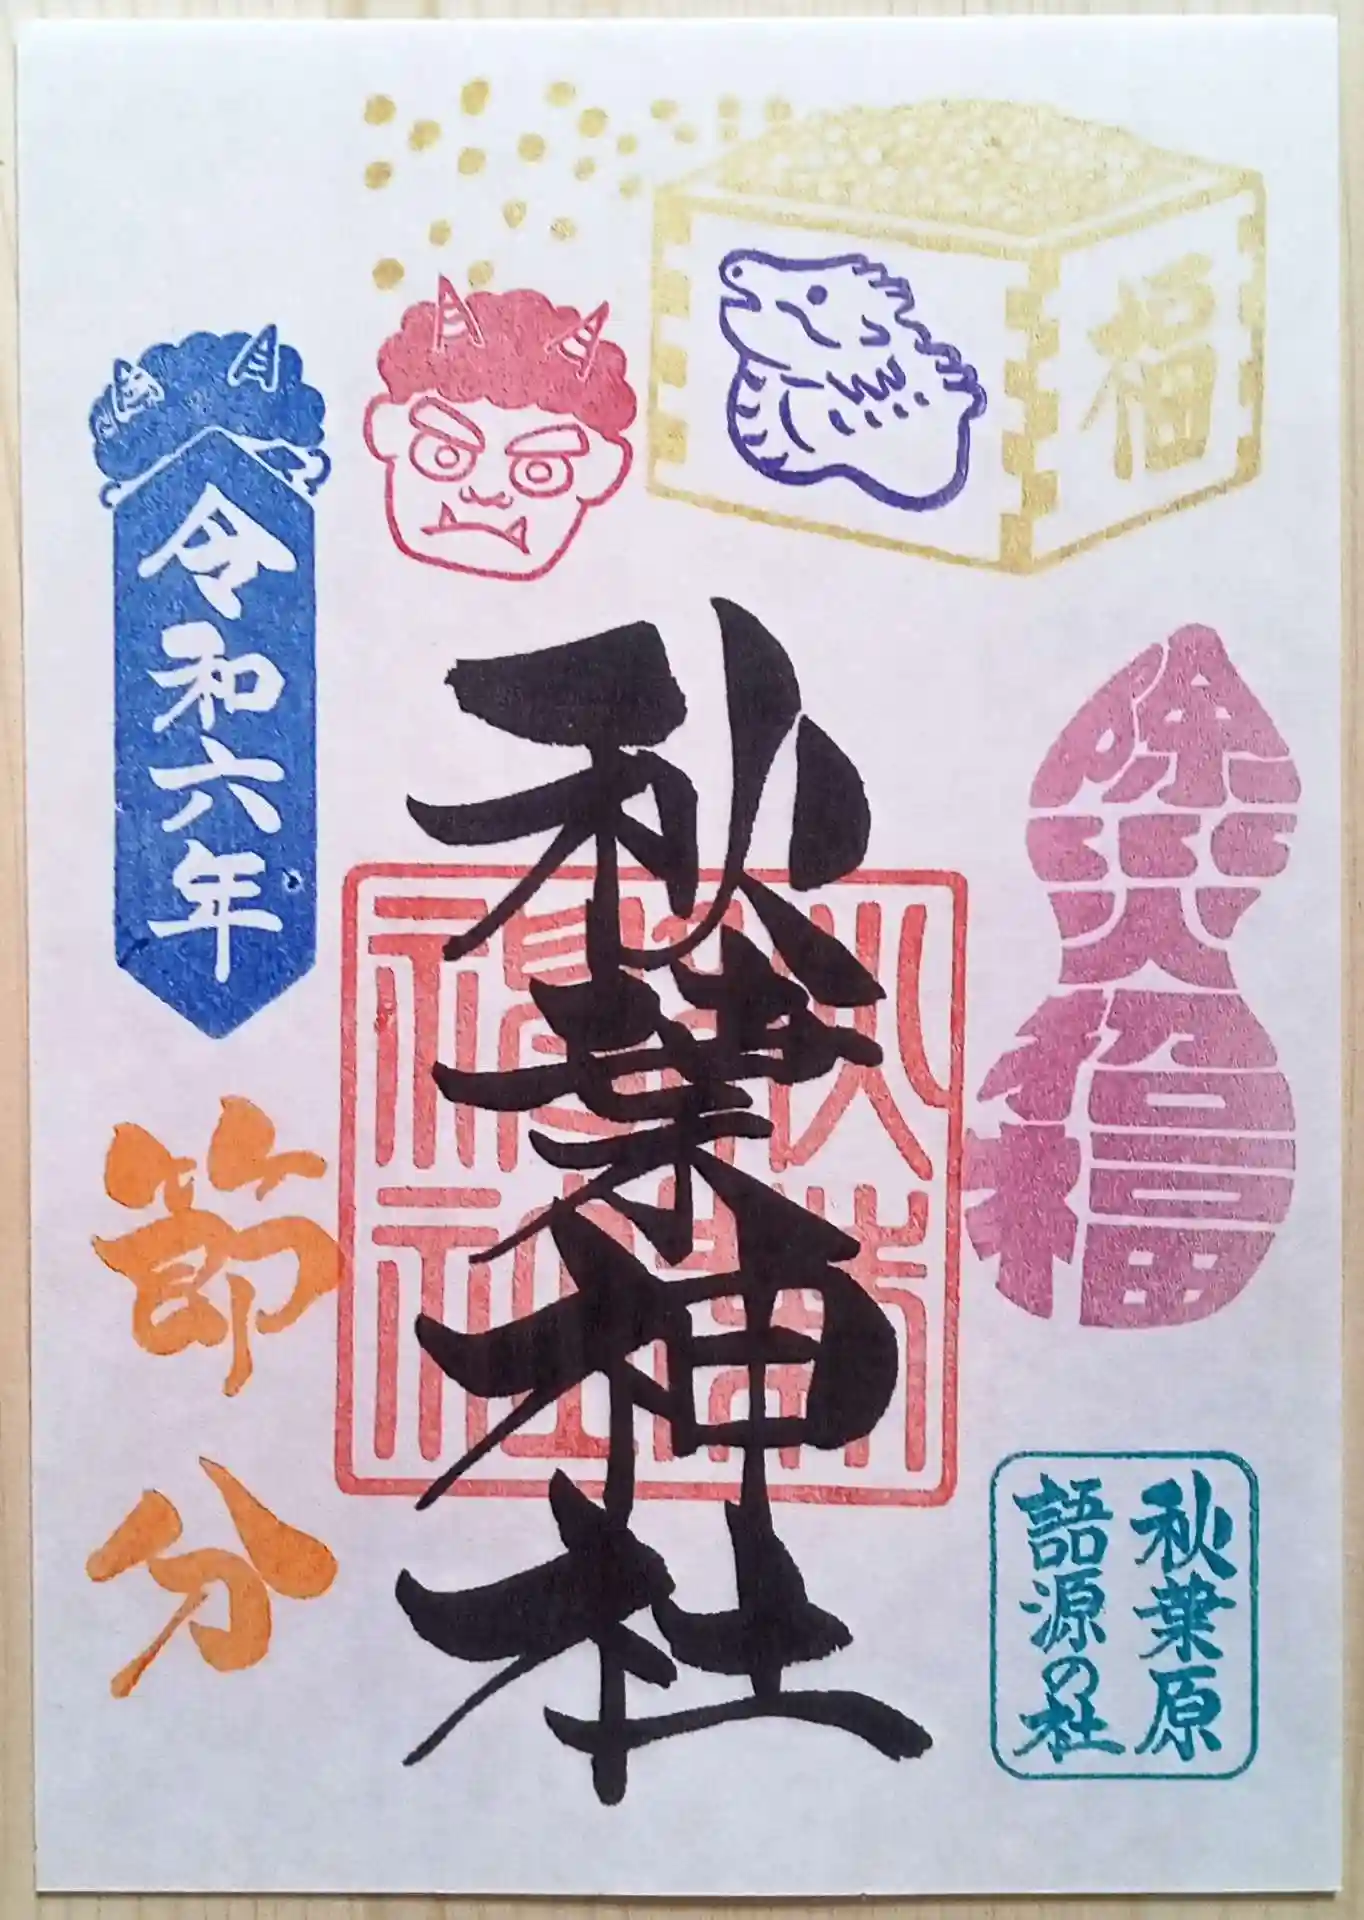 福
除災招福
秋葉原
語源の社
秋葉神社
令和六年
節分